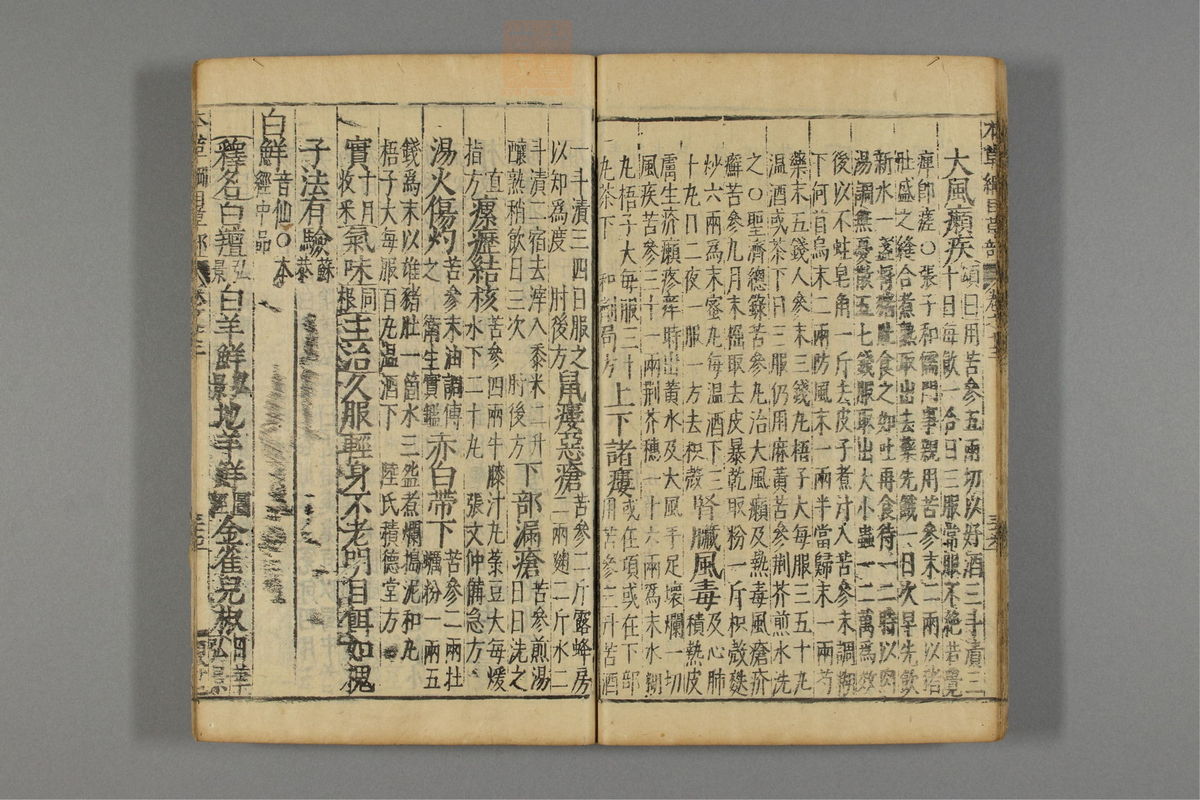 大風癩疾頌曰用苦參五兩切以好酒三斗漬三
十日每飲一合日三服常服不絕若覺
痺即瘥○張子和儒門事親用苦參末二兩以豬
肚盛之縫合煮熟取出去藥先餓一日次早先飲
新水一盞將豬肚食之如吐再食待一二時以肉
湯調無憂散五七錢服取出大小蟲一二萬為效
後以不蛀皂角一斤去皮子煮汁入苦參末調糊
下何首烏末二兩防風末一兩半當歸末一兩芍
藥末五錢人參末三錢丸梧子大每服三五十丸
溫酒或茶下日三服仍用麻黃苦參荊芥煎水洗
之○聖濟總錄苦參丸治大風癩及熱毒風瘡疥
癬苦參九月末掘取去皮暴乾取粉一斤枳殼麩
炒六兩為末蜜丸每溫酒下三十丸日二夜一服一方去枳殼
腎臟風毒及心肺積熱皮
膚生疥癩瘙痒時出黃水及大風手足壞爛一切
風疾苦參三十一兩荊芥穗一十六兩為末水糊
丸梧子大每服三十丸茶下和劑局方
上下諸瘻或在項或在下部用苦參五升苦酒
一斗漬三四日服之以知為度肘後方
鼠瘻惡瘡苦參二斤露蜂房二兩麴二斤水二
斗漬二宿去滓入黍米二升釀熟稍飲日三次肘後方
下部漏瘡苦參煎湯日日洗之直指方
瘰癧結核苦參四兩牛膝汁丸菉豆大每煖水下二十丸張文仲備急方
湯火傷灼苦參末油調傅之衛生寶鑑
赤白帶下苦參二兩牡蠣粉一兩五
錢為末以雄豬肚一箇水三盌煮爛搗泥和丸
梧子大每服百丸溫酒下陸氏積德堂方
實十月收采氣味同根主治久服輕身不老明目餌如槐
子法有驗蘇恭
白鮮音仙○本經中品
釋名白羶弘景白羊鮮弘景地羊鮮金雀兒椒